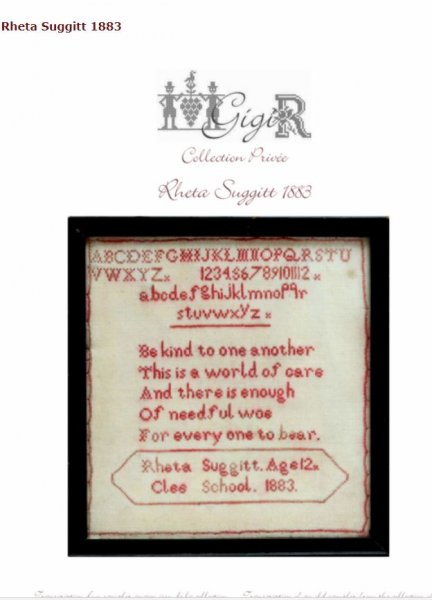 Rheta Suggitt 1883
Gigi R
Collection Privée
Rheta Suggitt 1883
ABCDEFGHIJKLMNOPQRSTU
VWXYZx 123456789101112x
abcdefghijklmnopqr
stuvwxyzx
Be kind to one another
This is a world of care
And there is enough
Of needful woe
For every one to bear.
Rheta Suggitt. Age 12x
Clee School. 1883.